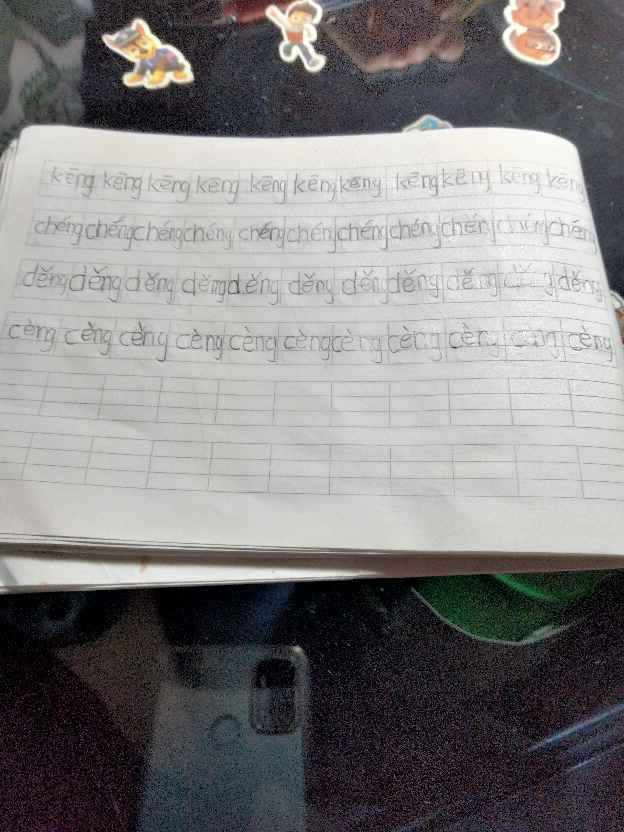 kēng kēng kēng kēng kēng kēng kēng kēng kēng kēng kēng
chéng chéng chéng chéng chéng chéng chéng chéng chéng chéng chéng
děng děng děng děng děng děng děng děng děng děng
cèng cèng cèng cèng cèng cèng cèng cèng cèng cèng cèng